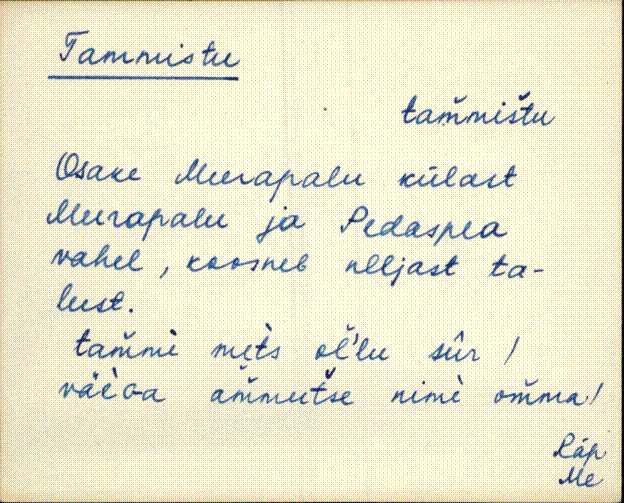 Tammistu
tam̆mištu
Osake Meerapalu külast
Meerapalu ja Pedaspea
vahel, koosneb neljast ta-
lust.
tam̆mè mèts ol̆'lu sûr!
väèga am̆mutše nimè om̆ma!
Räp
Me